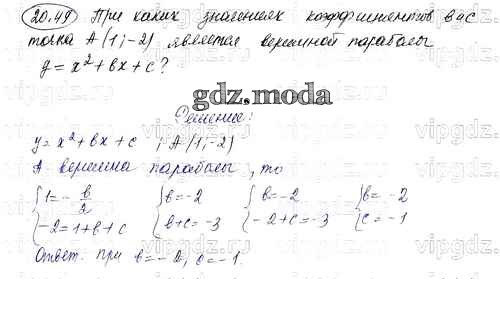 20.49 При каких значениях коэффициентов b и c
точка A(1;-2) является вершиной параболы
y=x²+bx+c?
gdz.moda
Решение:
y=x²+bx+c ; A(1;-2)
A вершина параболы, то
{1=-b/2 {b=-2 {b=-2 {b=-2
{-2=1+b+c {b+c=-3 {-2+c=-3 {c=-1
Ответ: при b=-2, c=-1.
vipgdz.ru